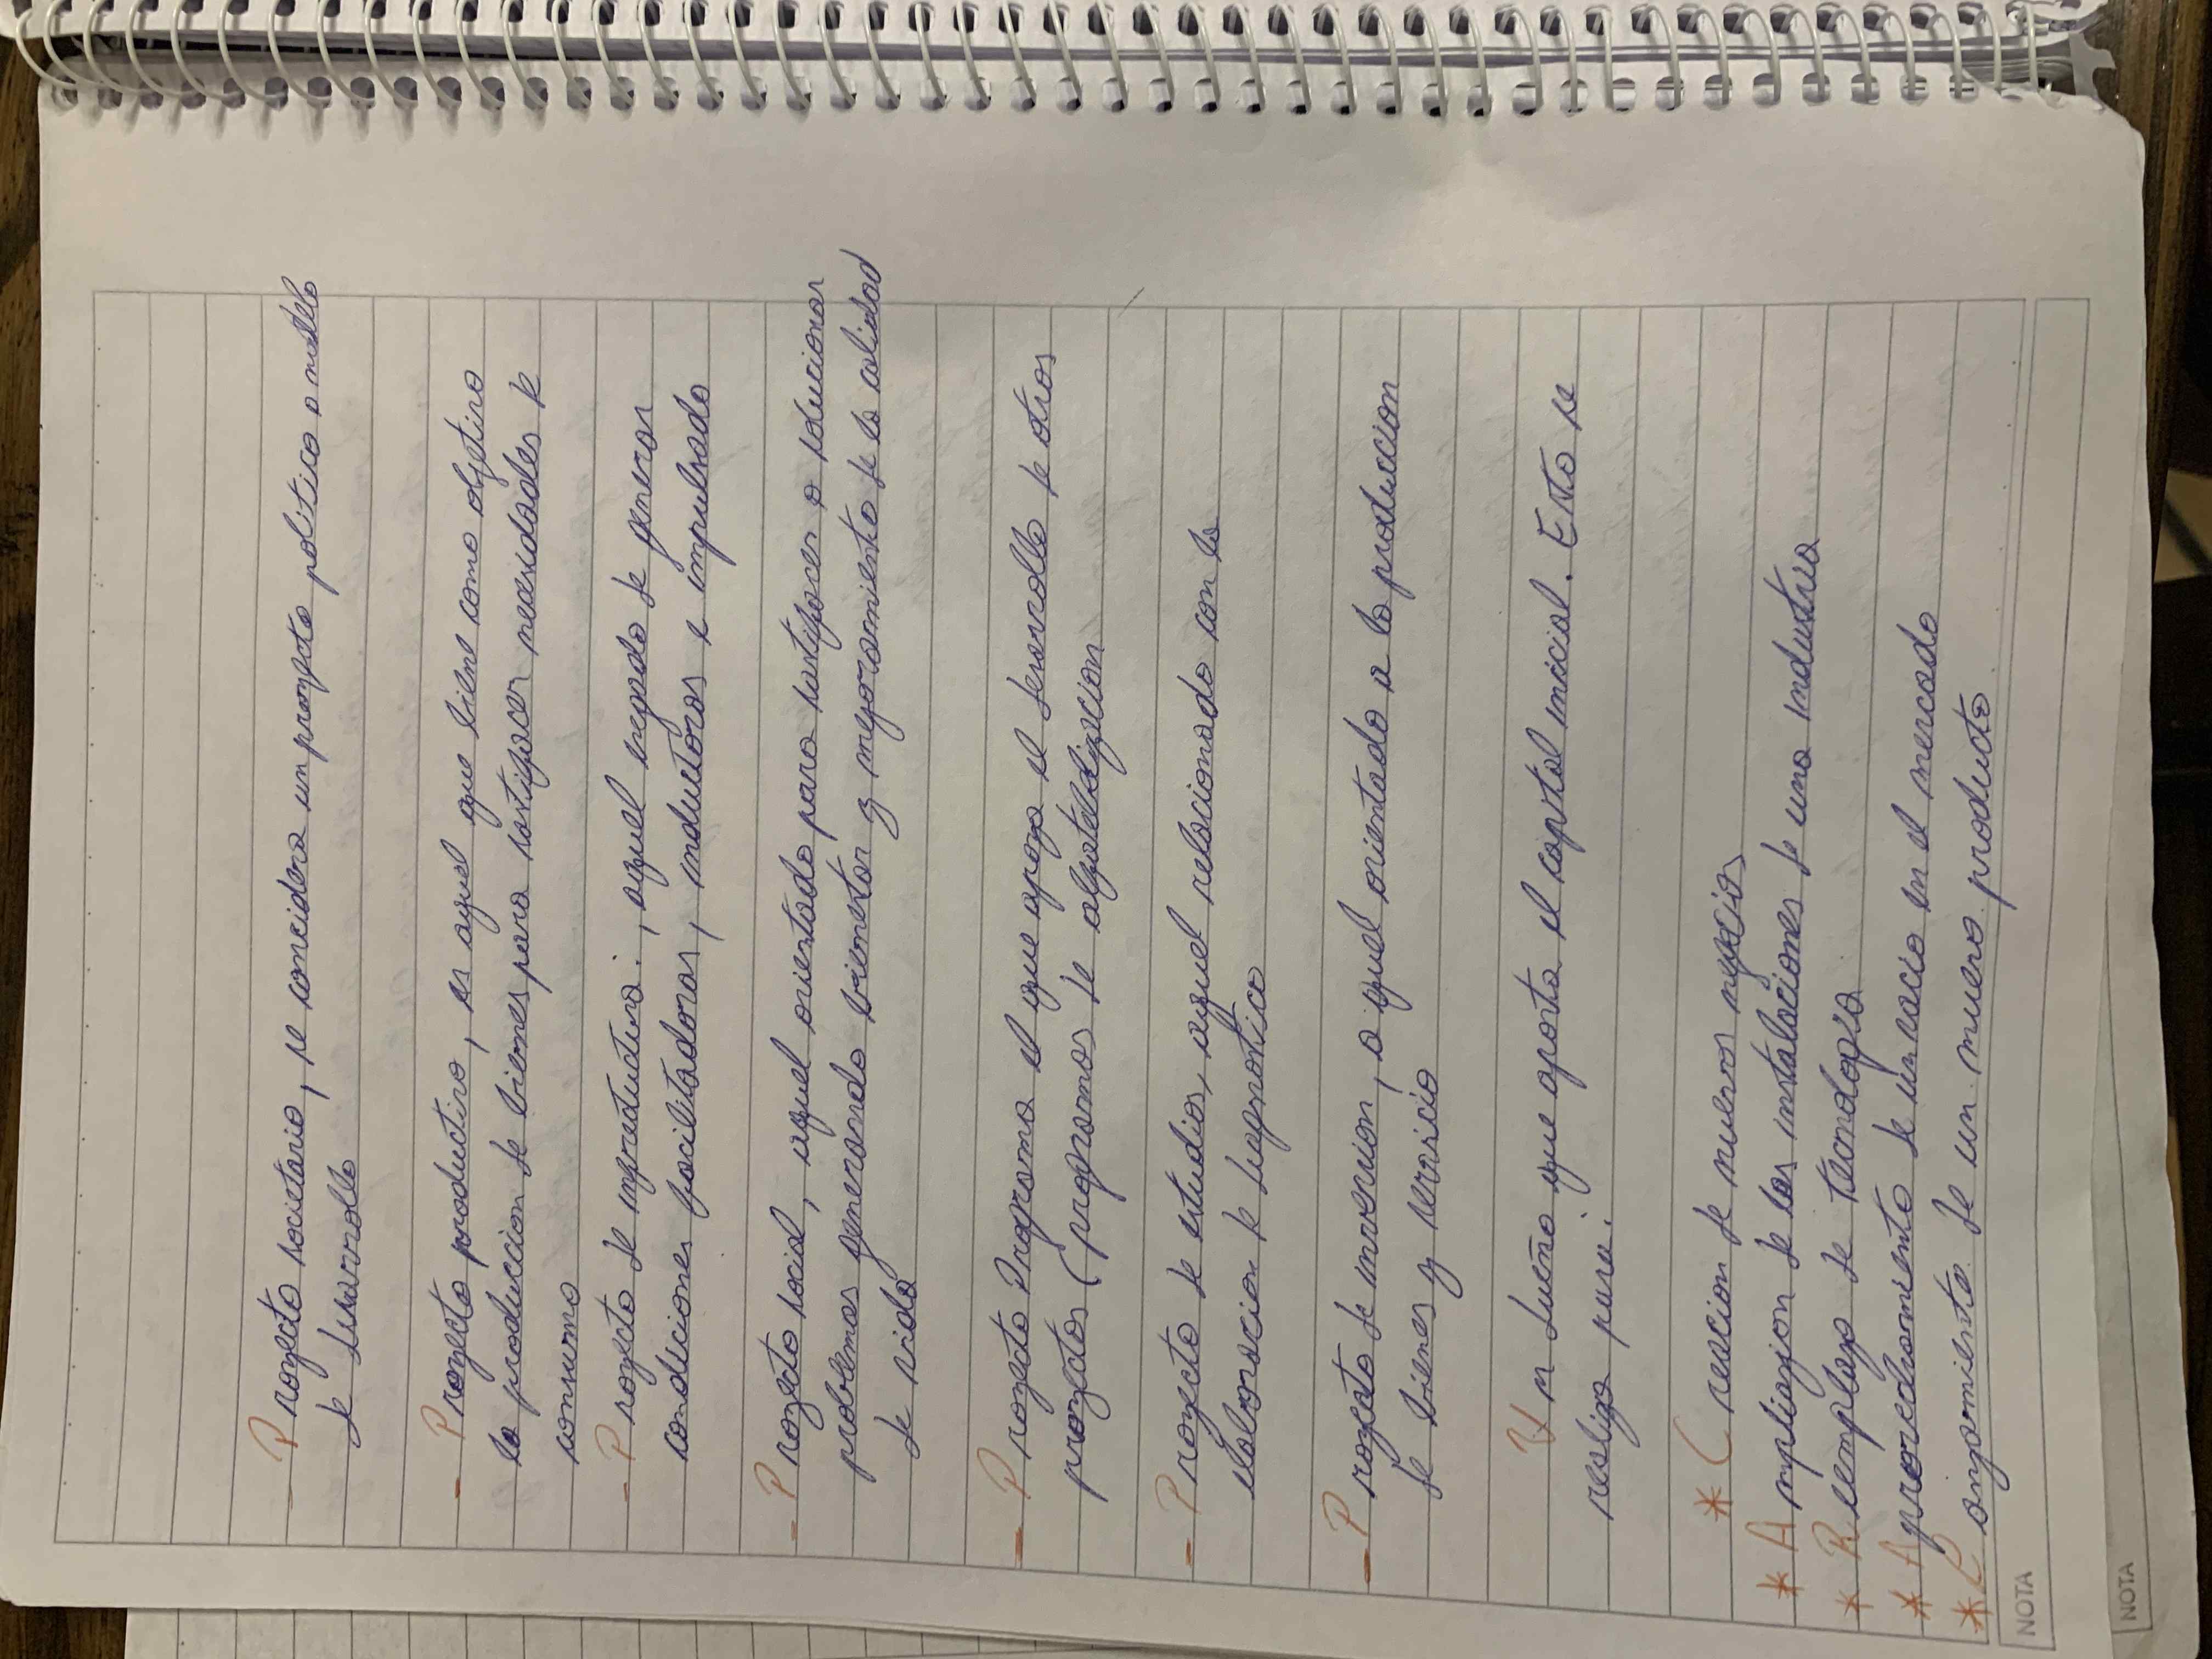 - Proyecto societario, se considera un proyecto politico o modelo
de desarrollo
- Proyecto productivo, es aquel que tiene como objetivo
la produccion de bienes para satisfacer necesidades de
consumo
- Proyecto de infraestructura:, aquel encargado de generar
condiciones facilitadoras, inductoras e impulsado
- Proyecto social, aquel orientado para satisfacer o solucionar
problemas generando bienestar y mejoramiento de la calidad
de vida
- Proyecto Programa el que apoya el desarrollo de otros
proyectos (programas de alfabetización
- Proyecto de estudios, aquel relacionado con la
elaboracion de diagnostico
- Proyecto de inversion, aquel orientado a la produccion
de bienes y servicio
Un dueño que aporta el capital inicial. Esto se
realiza para:
* Creacion de nuevos negocios
* Ampliazion de las instalaciones de una industria
* Reemplazo de tecnologia
* Aprovechamiento de un vacio en el mercado
* Lanzamiento de un nuevo producto
NOTA
NOTA